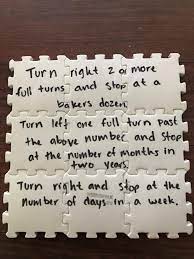 Turn right 2 or more
full turns and stop at a
bakers dozen.
Turn left one full turn past
the above number and stop
at the number of months in
two years.
Turn right and stop at the
number of days in a week.